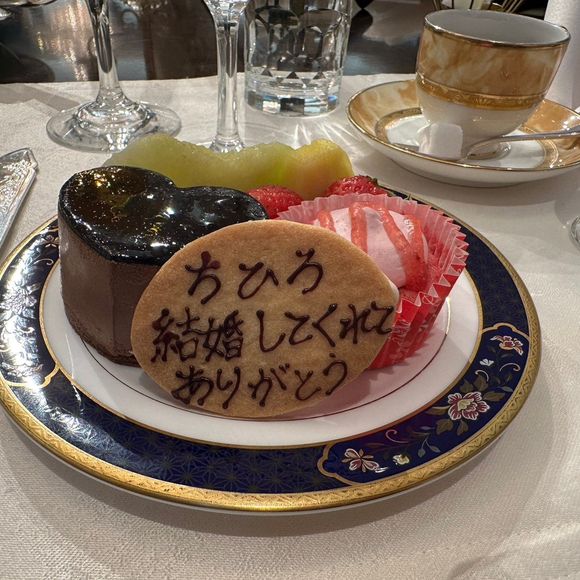 ちひろ
結婚してくれて
ありがとう